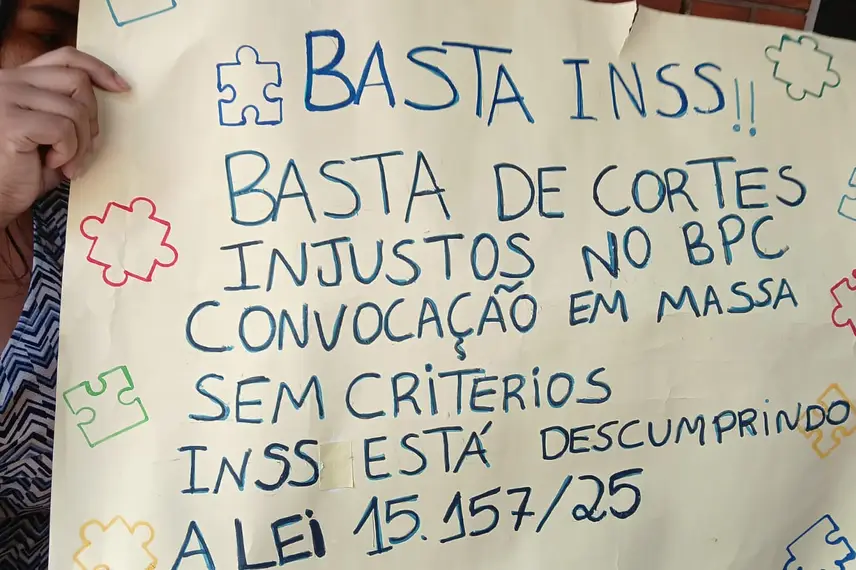 BASTA INSS!!
BASTA DE CORTES
INJUSTOS NO BPC
CONVOCAÇÃO EM MASSA
SEM CRITERIOS
INSS ESTÁ DESCUMPRINDO
A LEI 15.157/25